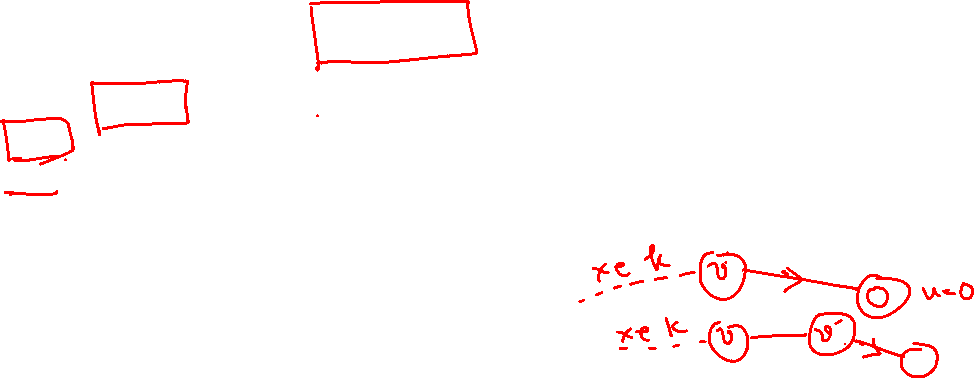 x e k v 0 u=0
x e k v v'